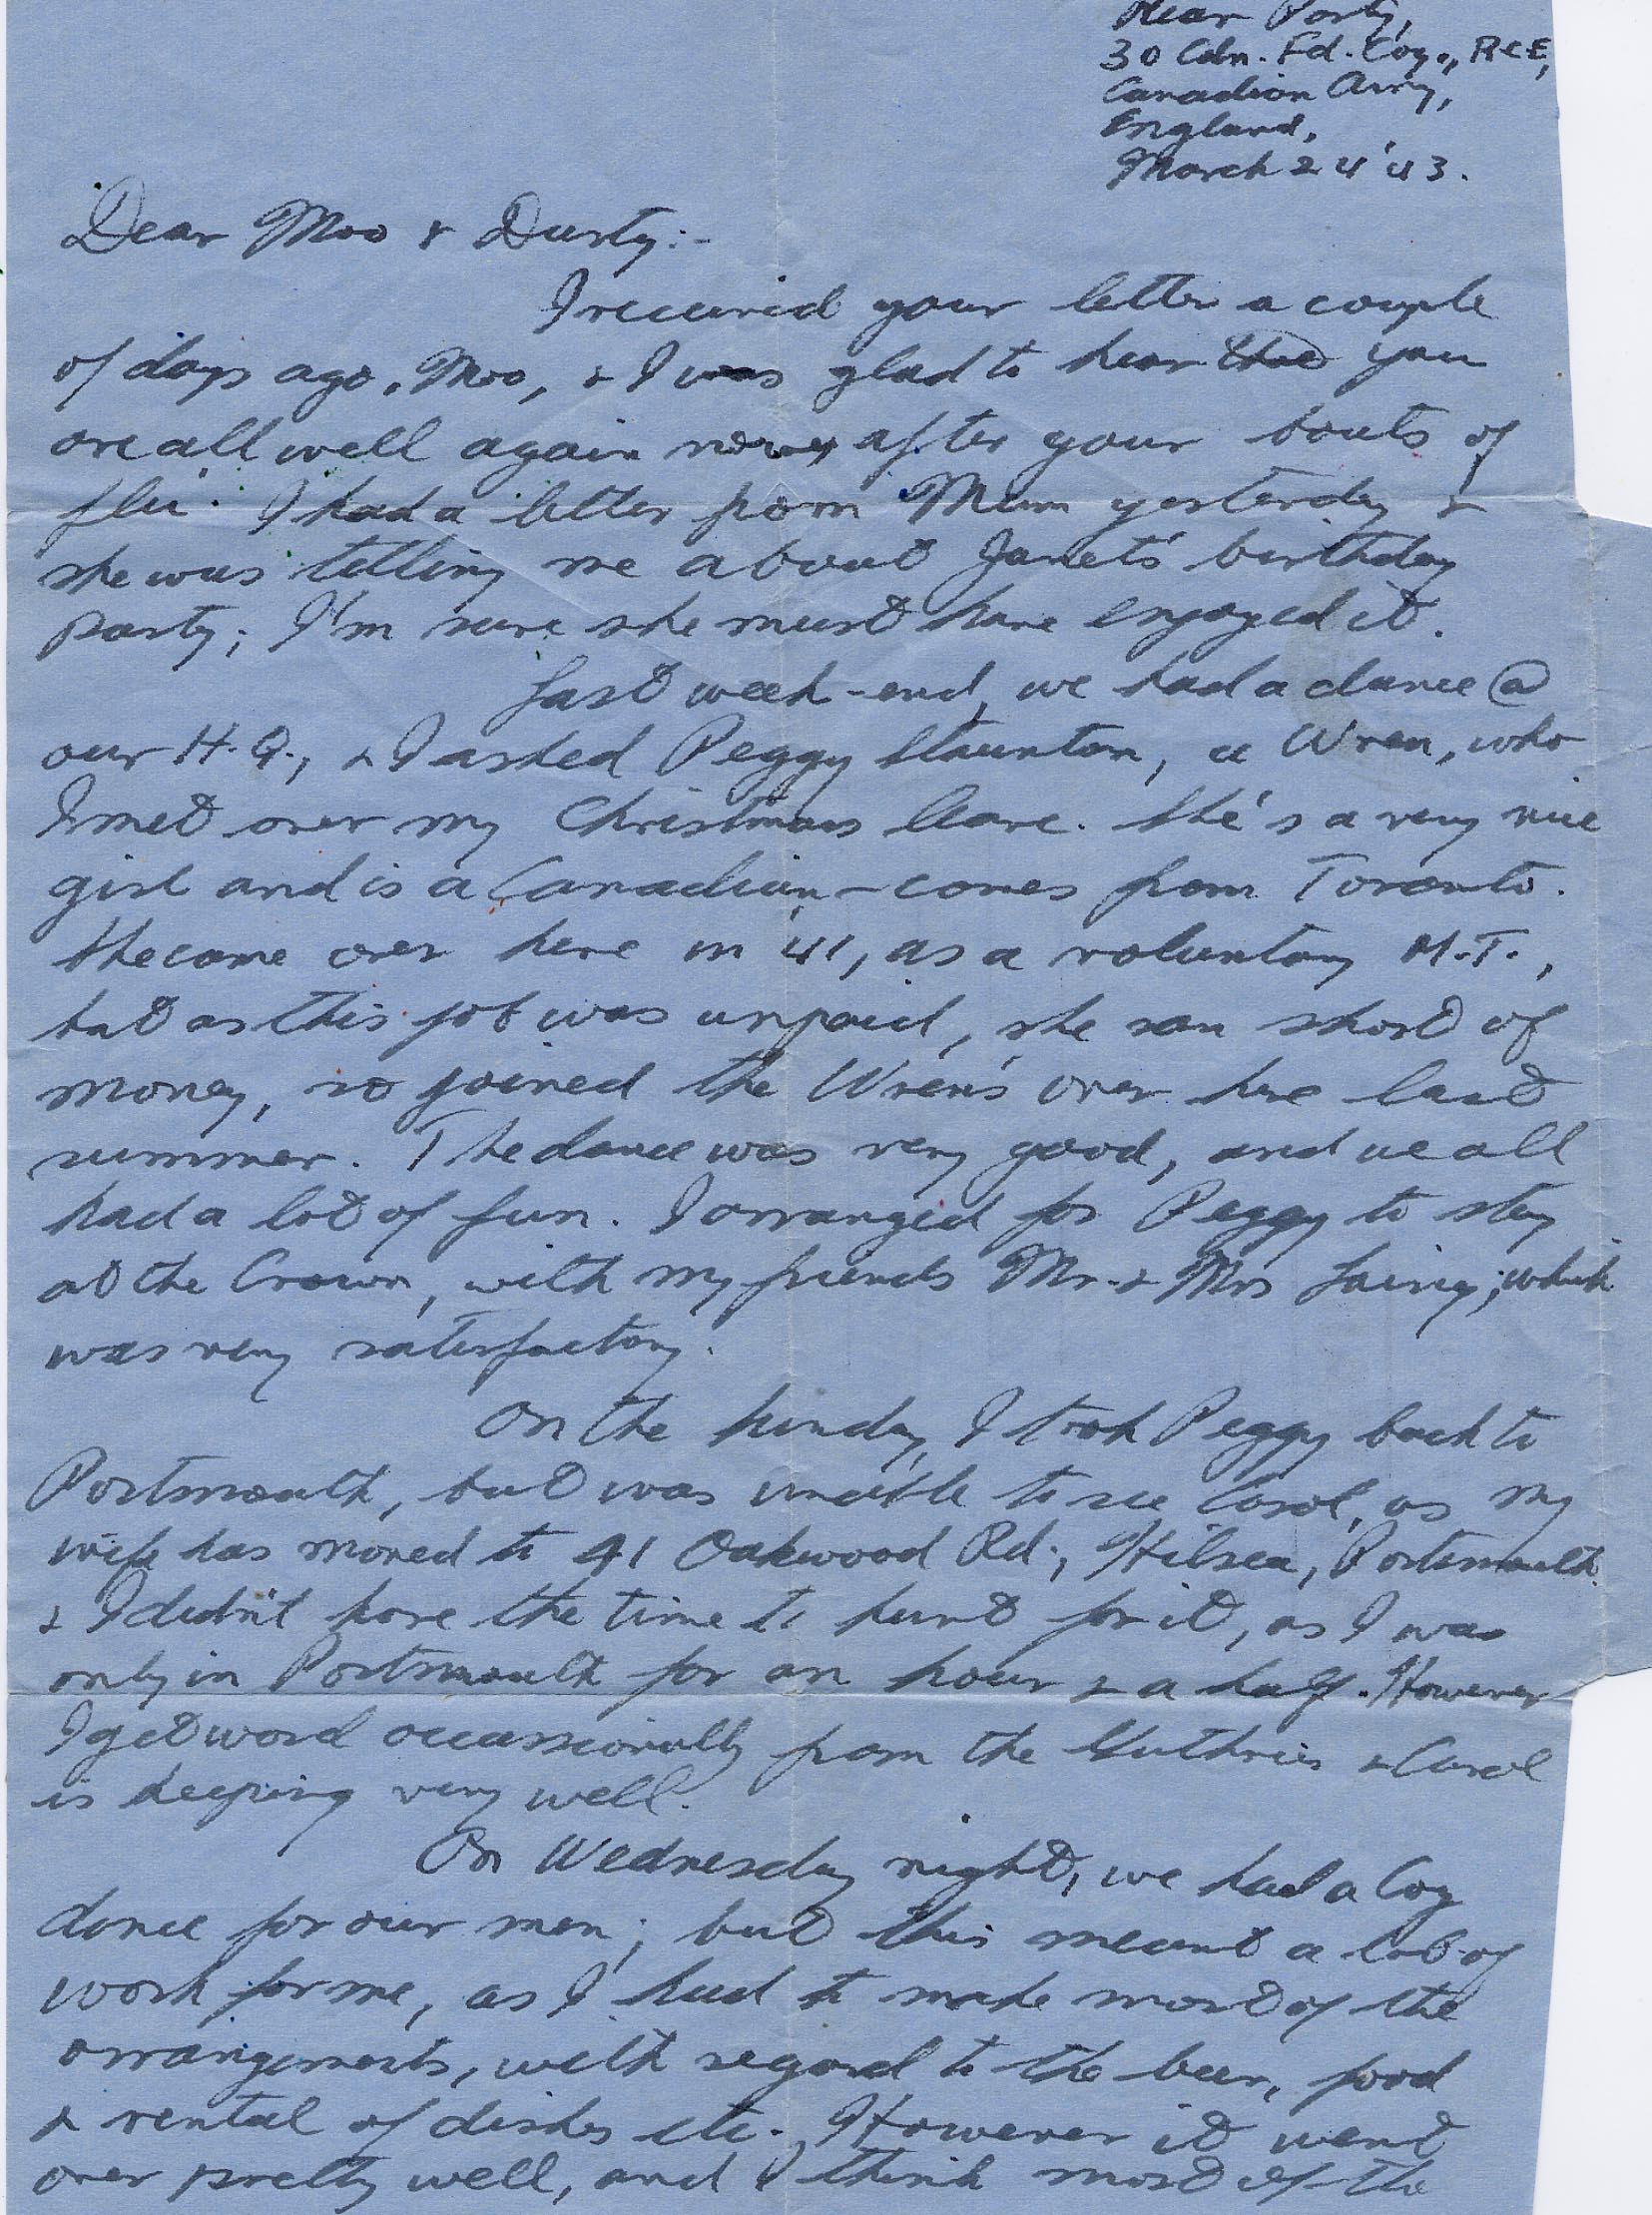 Rear Party,
30 Cdn. Fd. Coy., RCE,
Canadian Army,
England,
March 24 '43.
Dear Moo & Dusty:-
I received your letter a couple
of days ago, Moo, & I was glad to hear that you
are all well again now, after your bouts of
flu. I had a letter from Mum yesterday &
she was telling me about Janet's birthday
party; I'm sure she must have enjoyed it.
Last week-end, we had a dance @
our H.Q., & I asked Peggy Staunton, a Wren, who
I met over my Christmas leave. She's a very nice
girl and is a Canadian - comes from Toronto.
She came over here in '41, as a voluntary M.T.,
but as this job was unpaid, she ran short of
money, so joined the Wren's over here last
summer. The dance was very good, and we all
had a lot of fun. I arranged for Peggy to stay
at the Crown, with my friends Mr. & Mrs Laing; which
was very satisfactory.
On the Sunday, I took Peggy back to
Portsmouth, but was unable to see Carol, as my
wife has moved to 41 Oakwood Rd., Hilsea, Portsmouth.
& I didn't have the time to hunt for it, as I was
only in Portsmouth for an hour & a half. However
I get word occassionally from the Guthries & Carol
is keeping very well.
On Wednesday night, we had a Coy
dance for our men; but this meant a lot of
work for me, as I had to make most of the
arrangements, with regard to the beer, food
& rental of dishes etc. However it went
over pretty well, and I think most of the